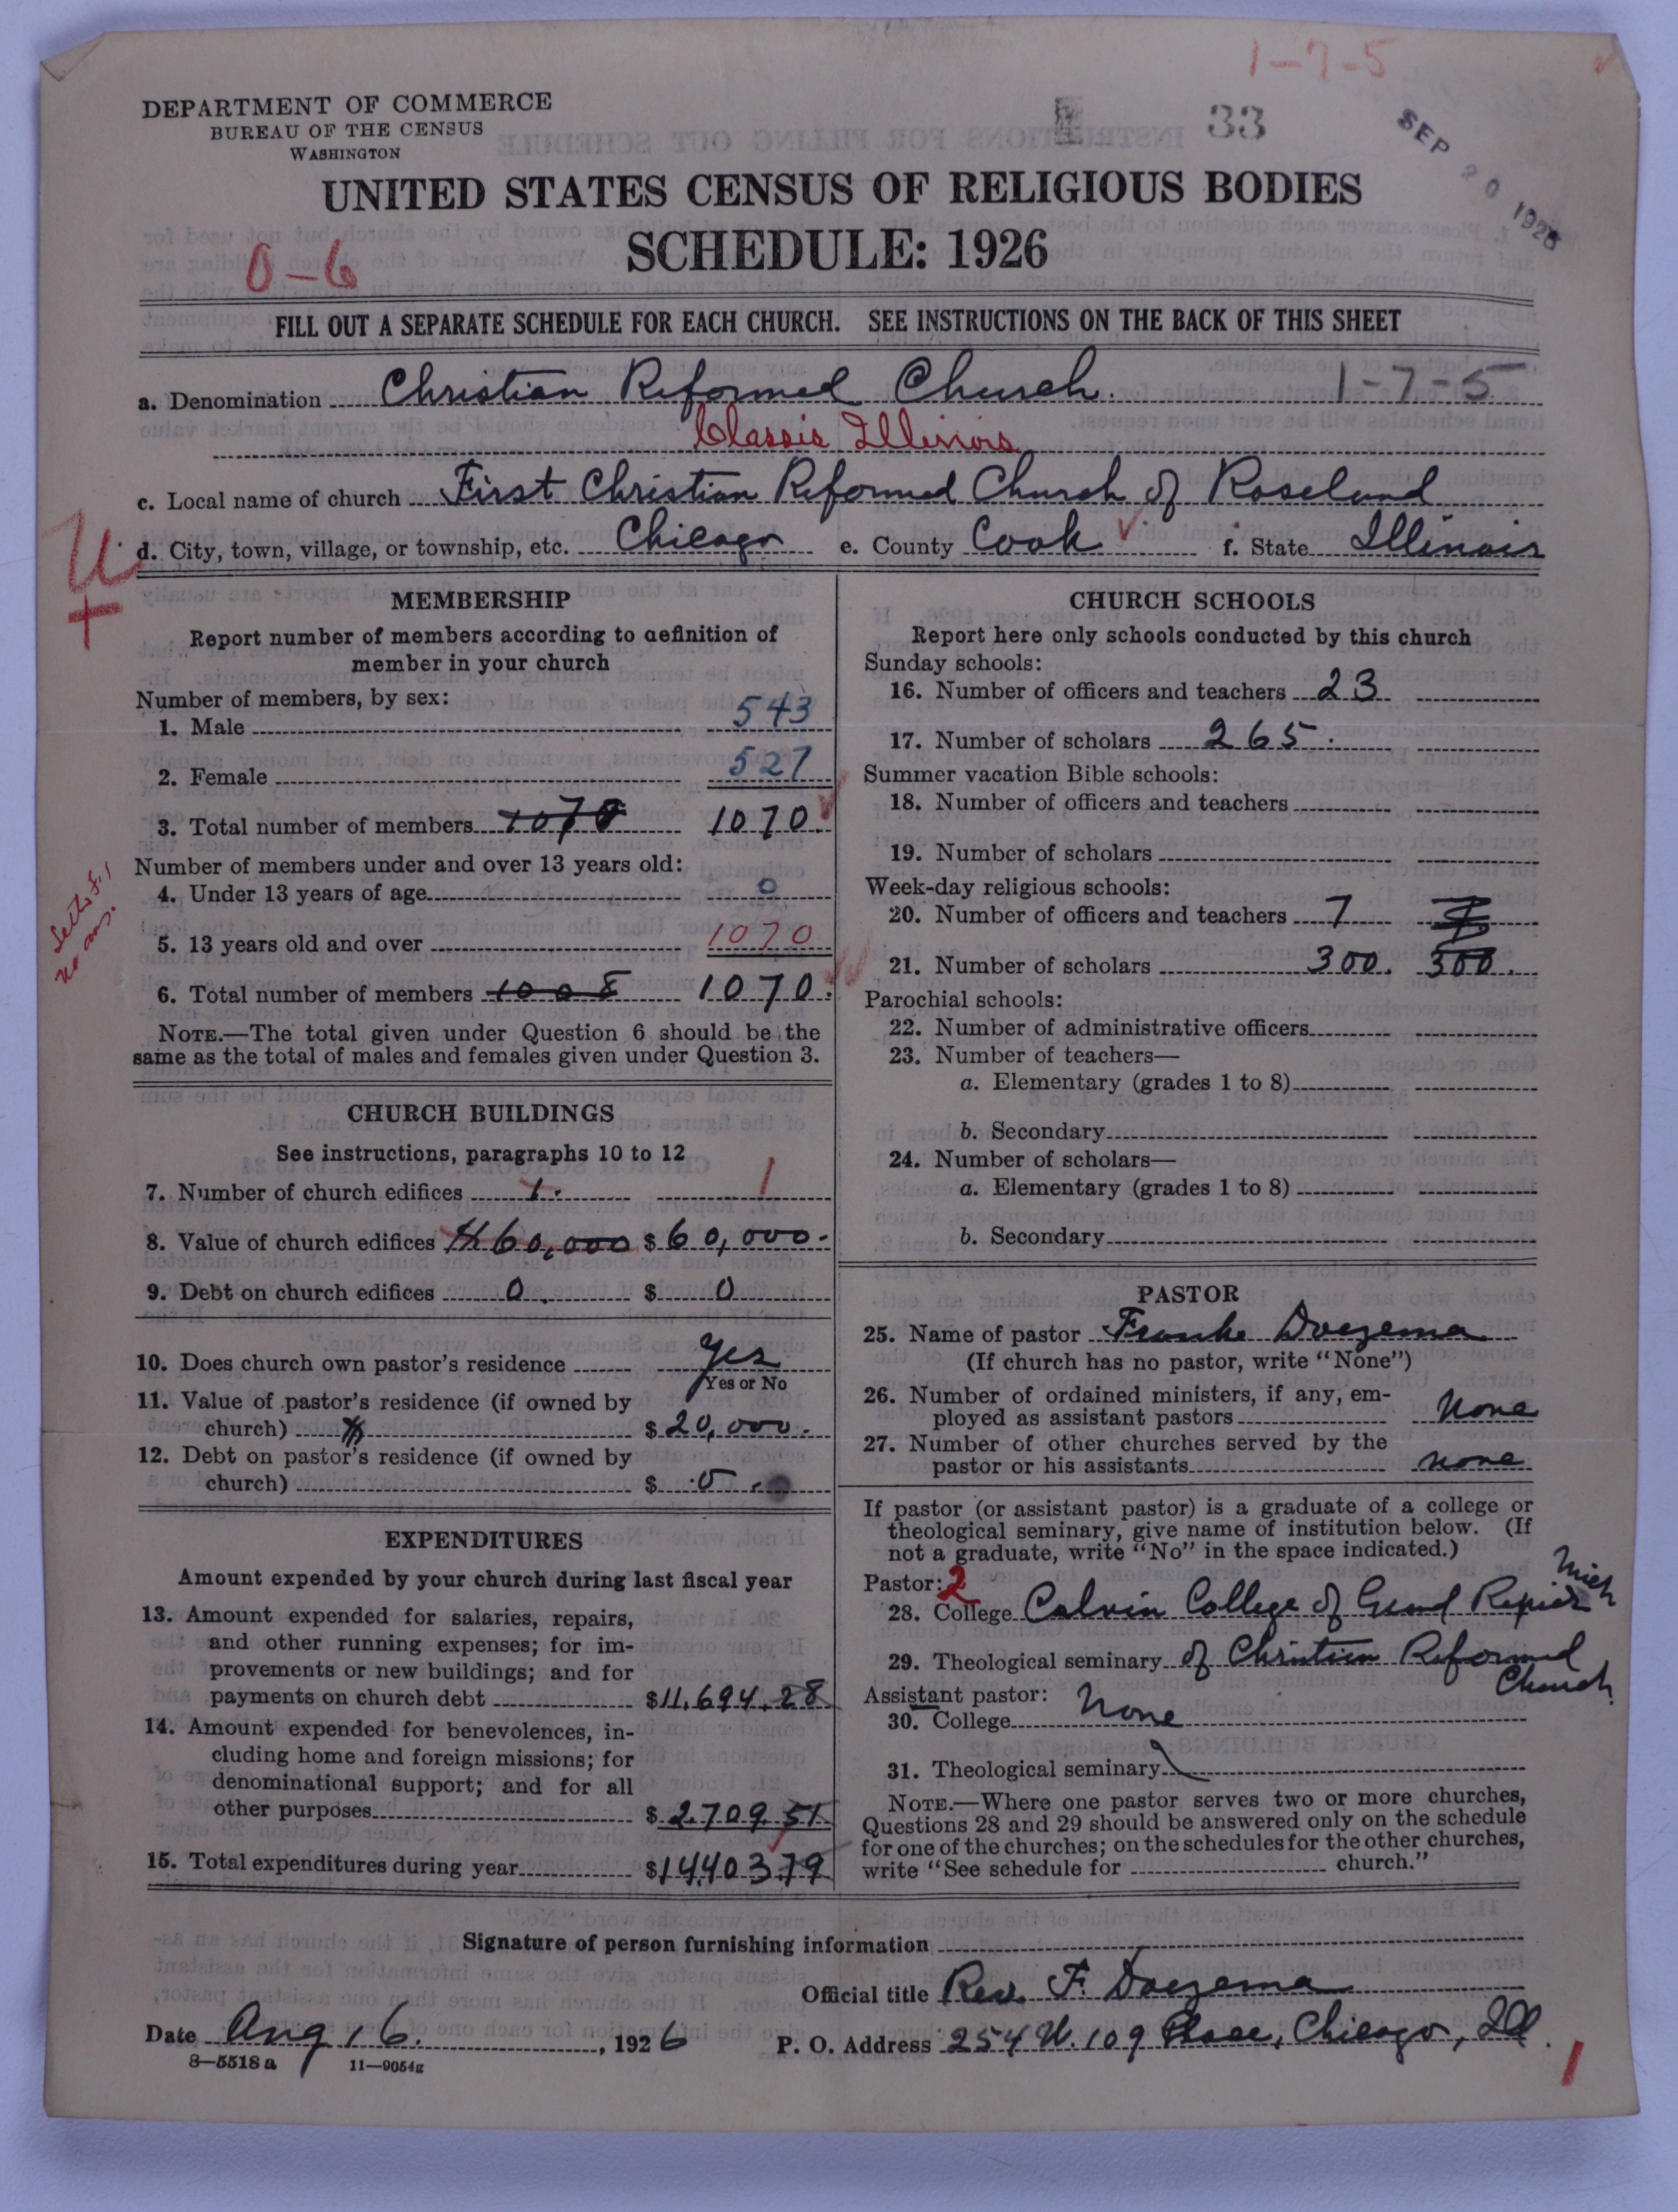 1-7-5
DEPARTMENT OF COMMERCE
BUREAU OF THE CENSUS
WASHINGTON
33
SEP 20 1926
UNITED STATES CENSUS OF RELIGIOUS BODIES
SCHEDULE: 1926
0-6
FILL OUT A SEPARATE SCHEDULE FOR EACH CHURCH. SEE INSTRUCTIONS ON THE BACK OF THIS SHEET
a. Denomination Christian Reformed Church. 1-7-5
Classis Illinois
c. Local name of church First Christian Reformed Church of Roseland
d. City, town, village, or township, etc. Chicago e. County Cook f. State Illinois
U
MEMBERSHIP
Report number of members according to definition of
member in your church
Number of members, by sex:
1. Male 543
2. Female 527
3. Total number of members 1070 1070.
Number of members under and over 13 years old:
4. Under 13 years of age 0
5. 13 years old and over 1070
no ans.
6. Total number of members 1008 1070.
NOTE.—The total given under Question 6 should be the
same as the total of males and females given under Question 3.
CHURCH BUILDINGS
See instructions, paragraphs 10 to 12
7. Number of church edifices 1. 1
8. Value of church edifices 60,000 $ 60,000.
9. Debt on church edifices 0. $ 0
10. Does church own pastor's residence Yes
Yes or No
11. Value of pastor's residence (if owned by
church) $ 20,000.
12. Debt on pastor's residence (if owned by
church) $ 0.
EXPENDITURES
Amount expended by your church during last fiscal year
13. Amount expended for salaries, repairs,
and other running expenses; for im-
provements or new buildings; and for
payments on church debt $11,694.28
14. Amount expended for benevolences, in-
cluding home and foreign missions; for
denominational support; and for all
other purposes $ 2709.51
15. Total expenditures during year $14403.79
CHURCH SCHOOLS
Report here only schools conducted by this church
Sunday schools:
16. Number of officers and teachers 23
17. Number of scholars 265.
Summer vacation Bible schools:
18. Number of officers and teachers
19. Number of scholars
Week-day religious schools:
20. Number of officers and teachers 7 7
21. Number of scholars 300. 300.
Parochial schools:
22. Number of administrative officers
23. Number of teachers—
a. Elementary (grades 1 to 8)
b. Secondary
24. Number of scholars—
a. Elementary (grades 1 to 8)
b. Secondary
PASTOR
25. Name of pastor Franke Doezema
(If church has no pastor, write "None")
26. Number of ordained ministers, if any, em-
ployed as assistant pastors None
27. Number of other churches served by the
pastor or his assistants none
If pastor (or assistant pastor) is a graduate of a college or
theological seminary, give name of institution below. (If
not a graduate, write "No" in the space indicated.)
Pastor: 2
28. College Calvin College of Grand Rapids Mich
29. Theological seminary of Christian Reformed
Church
Assistant pastor:
30. College None
31. Theological seminary
NOTE.—Where one pastor serves two or more churches,
Questions 28 and 29 should be answered only on the schedule
for one of the churches; on the schedules for the other churches,
write "See schedule for church."
Signature of person furnishing information
Official title Rev. F. Doezema
Date Aug 16. , 1926 P. O. Address 254 W. 109 Place, Chicago, Ill.
8—5518 a 11—9054g
1